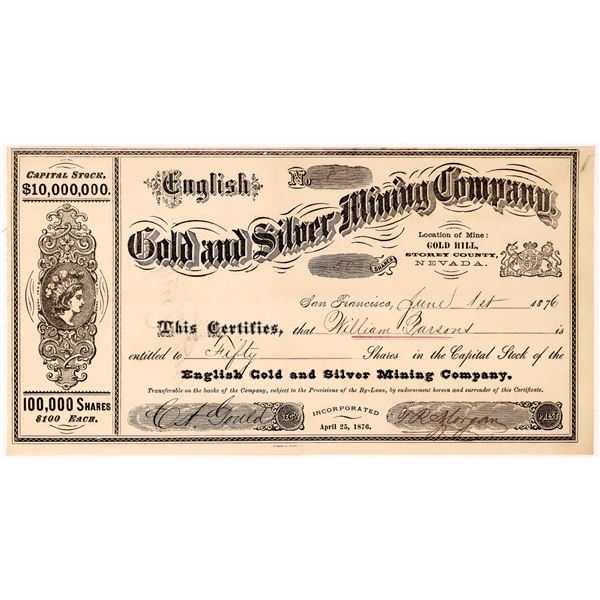 CAPITAL STOCK.
$10,000,000.
100,000 SHARES
$100 EACH.
English No
Gold and Silver Mining Company.
50 SHARES
Location of Mine:
GOLD HILL,
STOREY COUNTY,
NEVADA.
San Francisco, June 1st 1876
This Certifies, that William Parsons is
entitled to Fifty Shares in the Capital Stock of the
English Gold and Silver Mining Company.
Transferable on the books of the Company, subject to the Provisions of the By-Laws, by endorsement hereon and surrender of this Certificate.
C A Gould SECY INCORPORATED Morgan PREST
April 25, 1876.